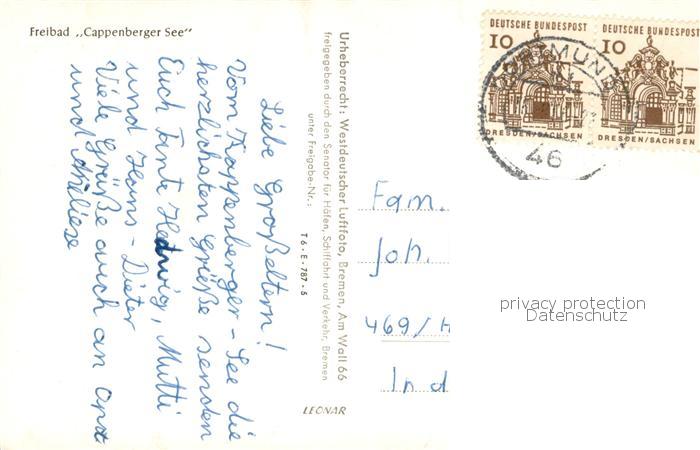 Freibad „Cappenberger See"
Liebe Großeltern!
Vom Kappenberger-See die
herzlichsten Grüße senden
Euch Tante Hedwig, Mutti
und Hans-Dieter
Viele Grüße auch an Opa
und Anneliese
Urheberrecht: Westdeutscher Luftfoto, Bremen, Am Wall 66
freigegeben durch den Senator für Häfen, Schiffahrt und Verkehr, Bremen
unter Freigabe-Nr.: T 6 - E - 787 - 5
LEONAR
DEUTSCHE BUNDESPOST
10
DRESDEN/SACHSEN
DEUTSCHE BUNDESPOST
10
DRESDEN/SACHSEN
DORTMUND
46
Fam.
Joh.
469/H
In d
privacy protection
Datenschutz